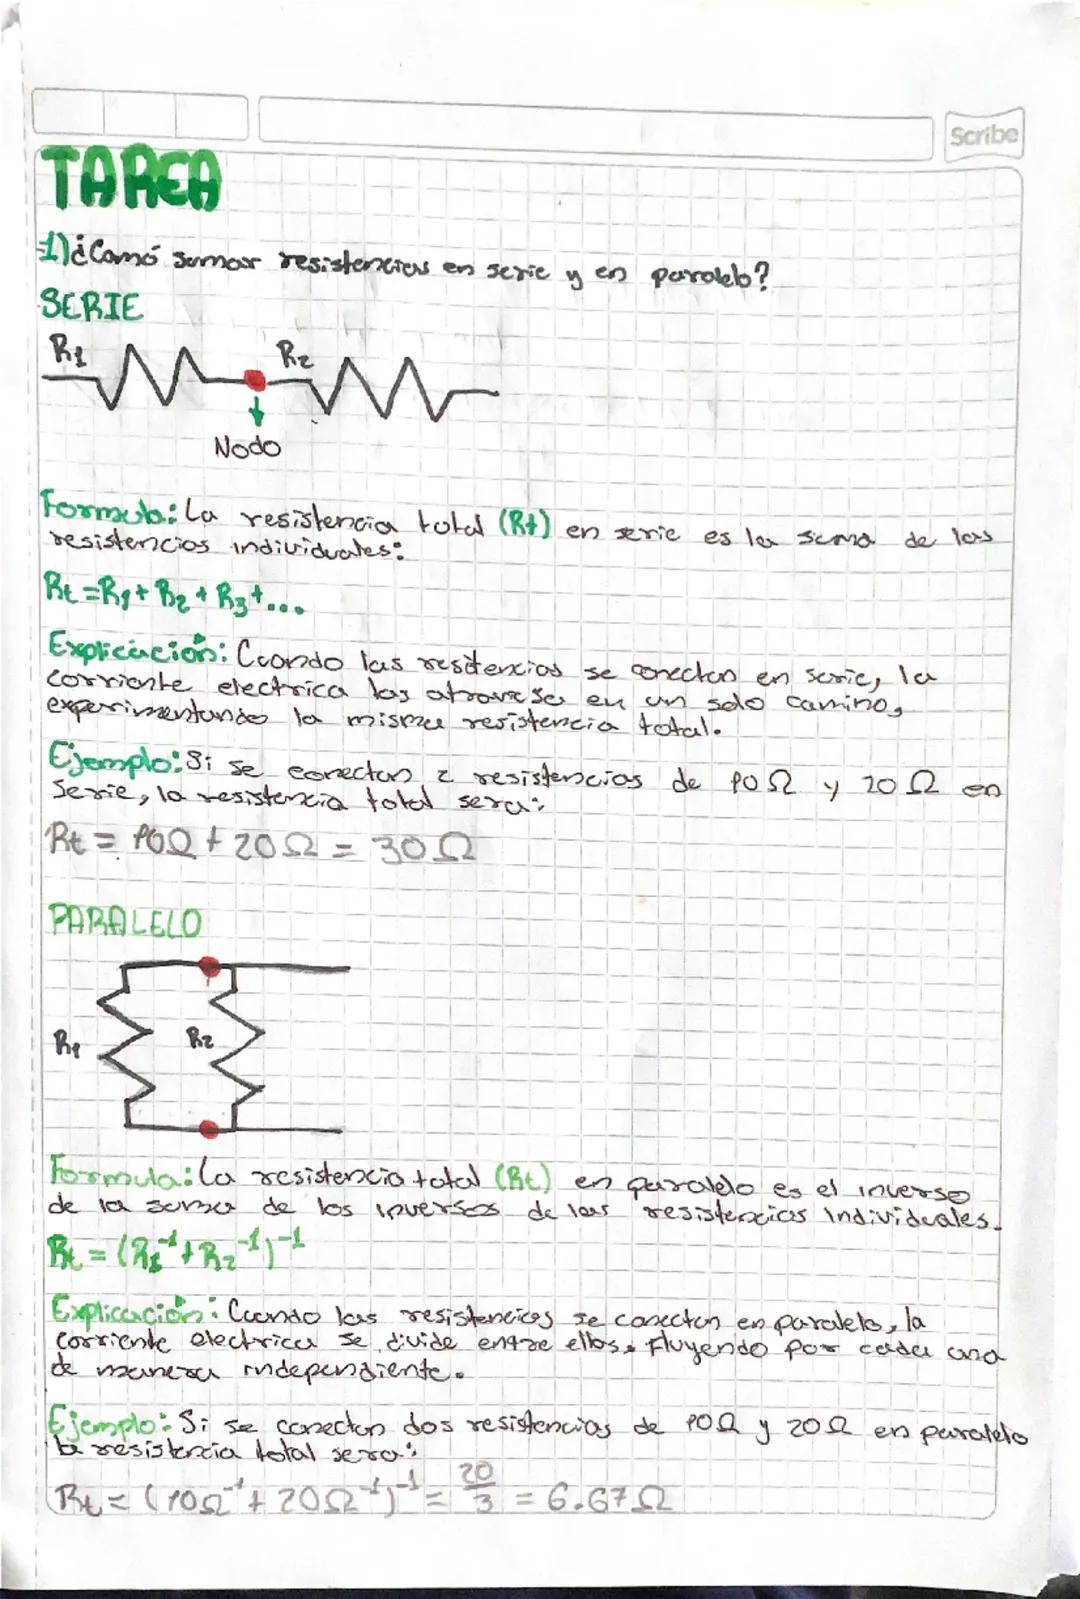 Scribe
TAREA
1)¿Comó sumar resistencias en serie y en paralelo?
SERIE
R1 R2
Nodo
Formula: La resistencia total (Rt) en serie es la suma de las
resistencias individuales:
Rt=R1+R2+R3+...
Explicación: Cuando las resitencias se conectan en serie, la
corriente electrica las atraviesa en un solo camino,
experimentando la misma resistencia total.
Ejemplo: Si se conectan 2 resistencias de 10Ω y 20Ω en
Serie, la resistencia total sera:
Rt = 10Ω + 20Ω = 30Ω
PARALELO
R1 R2
Formula: La resistencia total (Rt) en paralelo es el inverso
de la suma de los inversos de las resistencias individuales.
Rt = (R1⁻¹+R2⁻¹)⁻¹
Explicación: Cuando las resistencias se conectan en paralelo, la
corriente electrica se divide entre ellos, fluyendo por cada una
de manera independiente.
Ejemplo: Si se conectan dos resistencias de 10Ω y 20Ω en paralelo
la resistencia total sera:
Rt = (10Ω⁻¹+ 20Ω⁻¹)⁻¹ = 20/3 = 6.67Ω